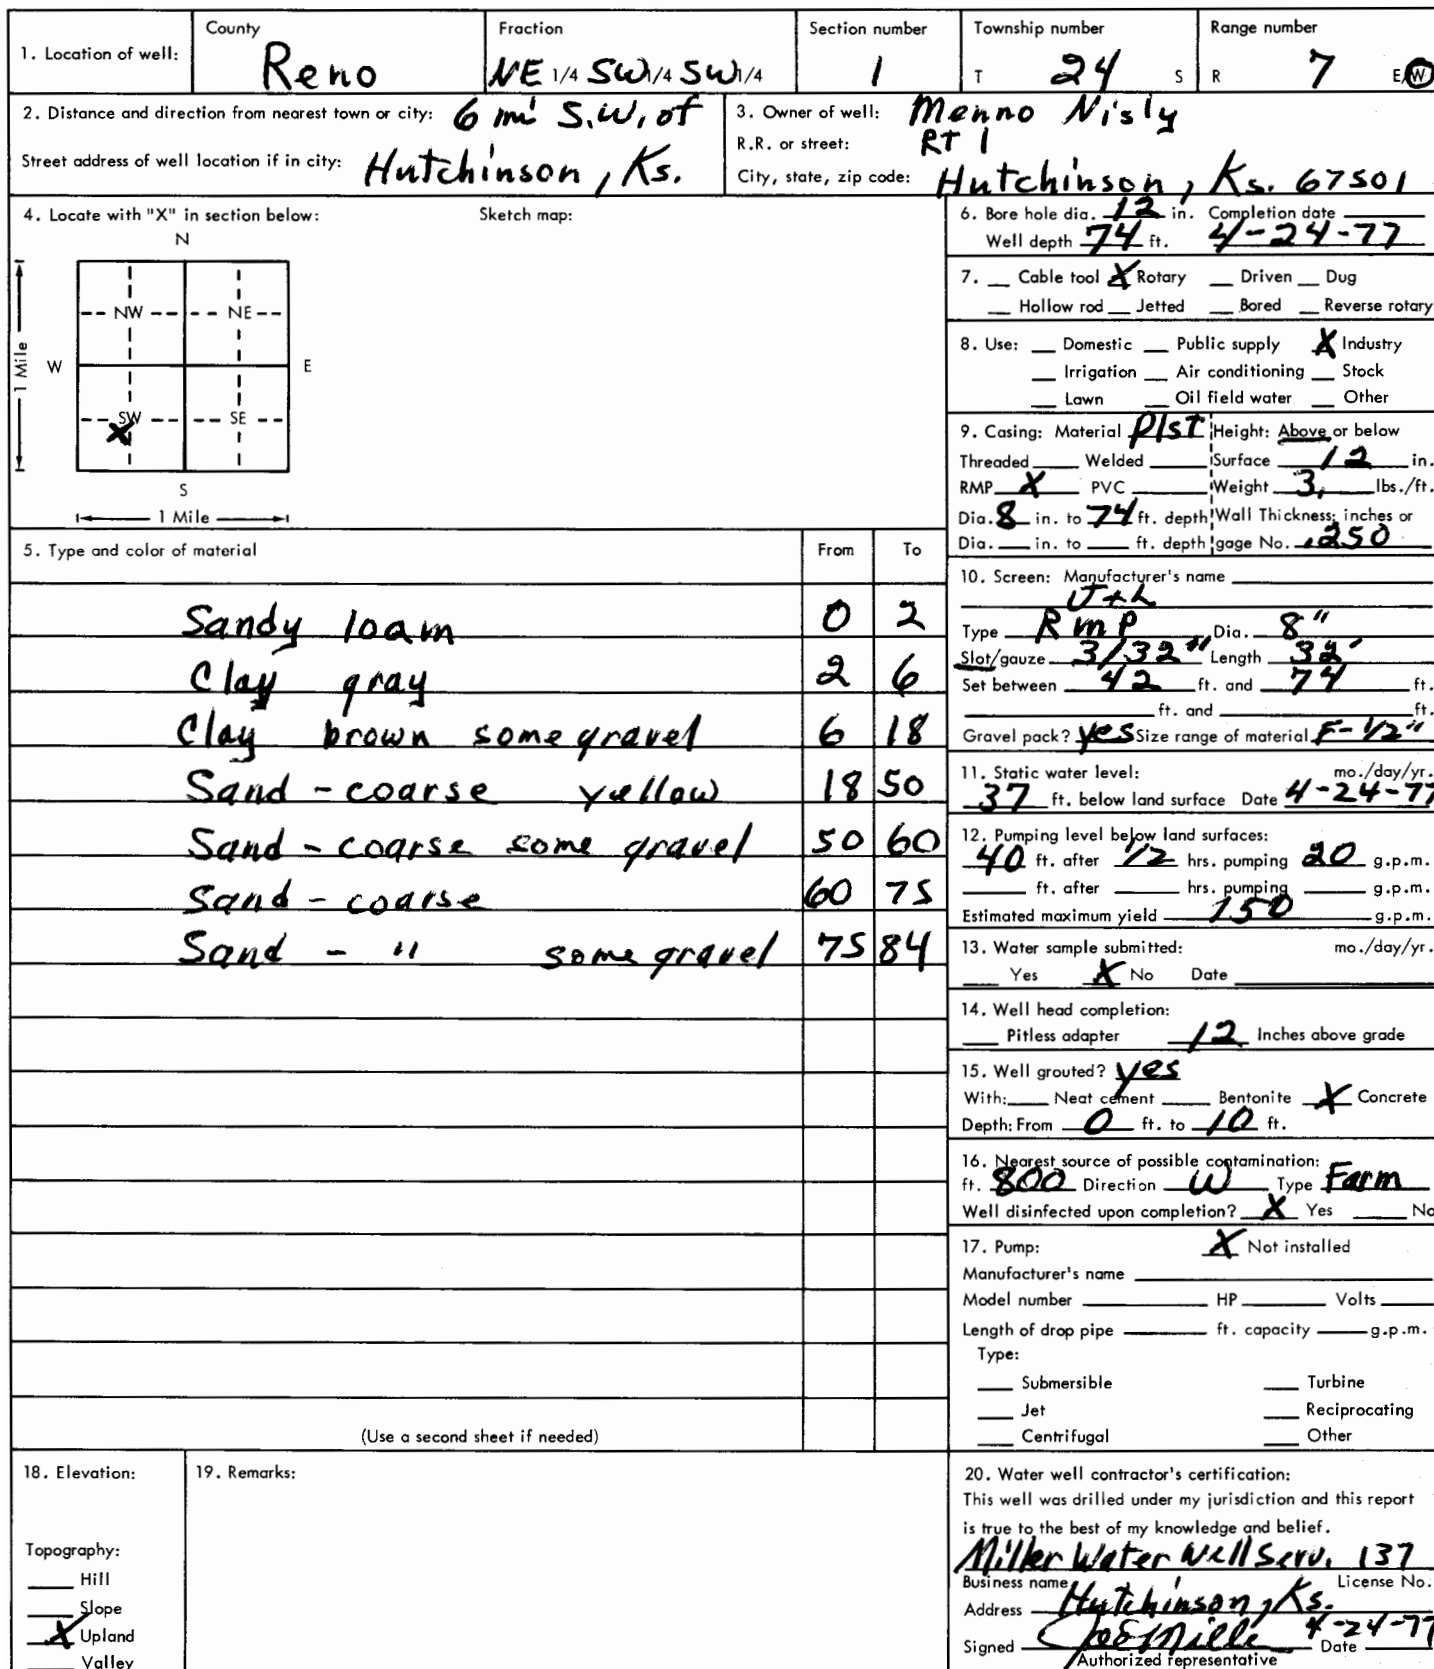 1. Location of well: County Reno Fraction NE 1/4 SW 1/4 SW 1/4 Section number 1 Township number T 24 S Range number R 7 E/W
2. Distance and direction from nearest town or city: 6 mi S.W. of
Street address of well location if in city: Hutchinson, Ks.
3. Owner of well: Menno Nisly
R.R. or street: RT 1
City, state, zip code: Hutchinson, Ks. 67501
4. Locate with "X" in section below: Sketch map:
N
NW NE
W E
1 Mile
SW SE
X
S
1 Mile
5. Type and color of material From To
Sandy loam 0 2
Clay gray 2 6
Clay brown some gravel 6 18
Sand - coarse yellow 18 50
Sand - coarse some gravel 50 60
Sand - coarse 60 75
Sand - " some gravel 75 84
(Use a second sheet if needed)
6. Bore hole dia. 12 in. Completion date
Well depth 74 ft. 4-24-77
7. Cable tool X Rotary Driven Dug
Hollow rod Jetted Bored Reverse rotary
8. Use: Domestic Public supply X Industry
Irrigation Air conditioning Stock
Lawn Oil field water Other
9. Casing: Material Plst Height: Above or below
Threaded Welded Surface 12 in.
RMP X PVC Weight 3. lbs./ft.
Dia. 8 in. to 74 ft. depth Wall Thickness: inches or
Dia. in. to ft. depth gage No. .250
10. Screen: Manufacturer's name
J+L
Type RMP Dia. 8"
Slot/gauze 3/32" Length 32'
Set between 42 ft. and 74 ft.
ft. and ft.
Gravel pack? yes Size range of material F-1/2"
11. Static water level: mo./day/yr.
37 ft. below land surface Date 4-24-77
12. Pumping level below land surfaces:
40 ft. after 12 hrs. pumping 20 g.p.m.
ft. after hrs. pumping g.p.m.
Estimated maximum yield 150 g.p.m.
13. Water sample submitted: mo./day/yr.
Yes X No Date
14. Well head completion:
Pitless adapter 12 Inches above grade
15. Well grouted? yes
With: Neat cement Bentonite X Concrete
Depth: From 0 ft. to 10 ft.
16. Nearest source of possible contamination:
ft. 800 Direction W Type Farm
Well disinfected upon completion? X Yes No
17. Pump: X Not installed
Manufacturer's name
Model number HP Volts
Length of drop pipe ft. capacity g.p.m.
Type:
Submersible Turbine
Jet Reciprocating
Centrifugal Other
18. Elevation:
Topography:
Hill
Slope
X Upland
Valley
19. Remarks:
20. Water well contractor's certification:
This well was drilled under my jurisdiction and this report
is true to the best of my knowledge and belief.
Miller Water Well Serv. 137
Business name License No.
Address Hutchinson, Ks.
Signed Joe E Mille Date 4-24-77
Authorized representative